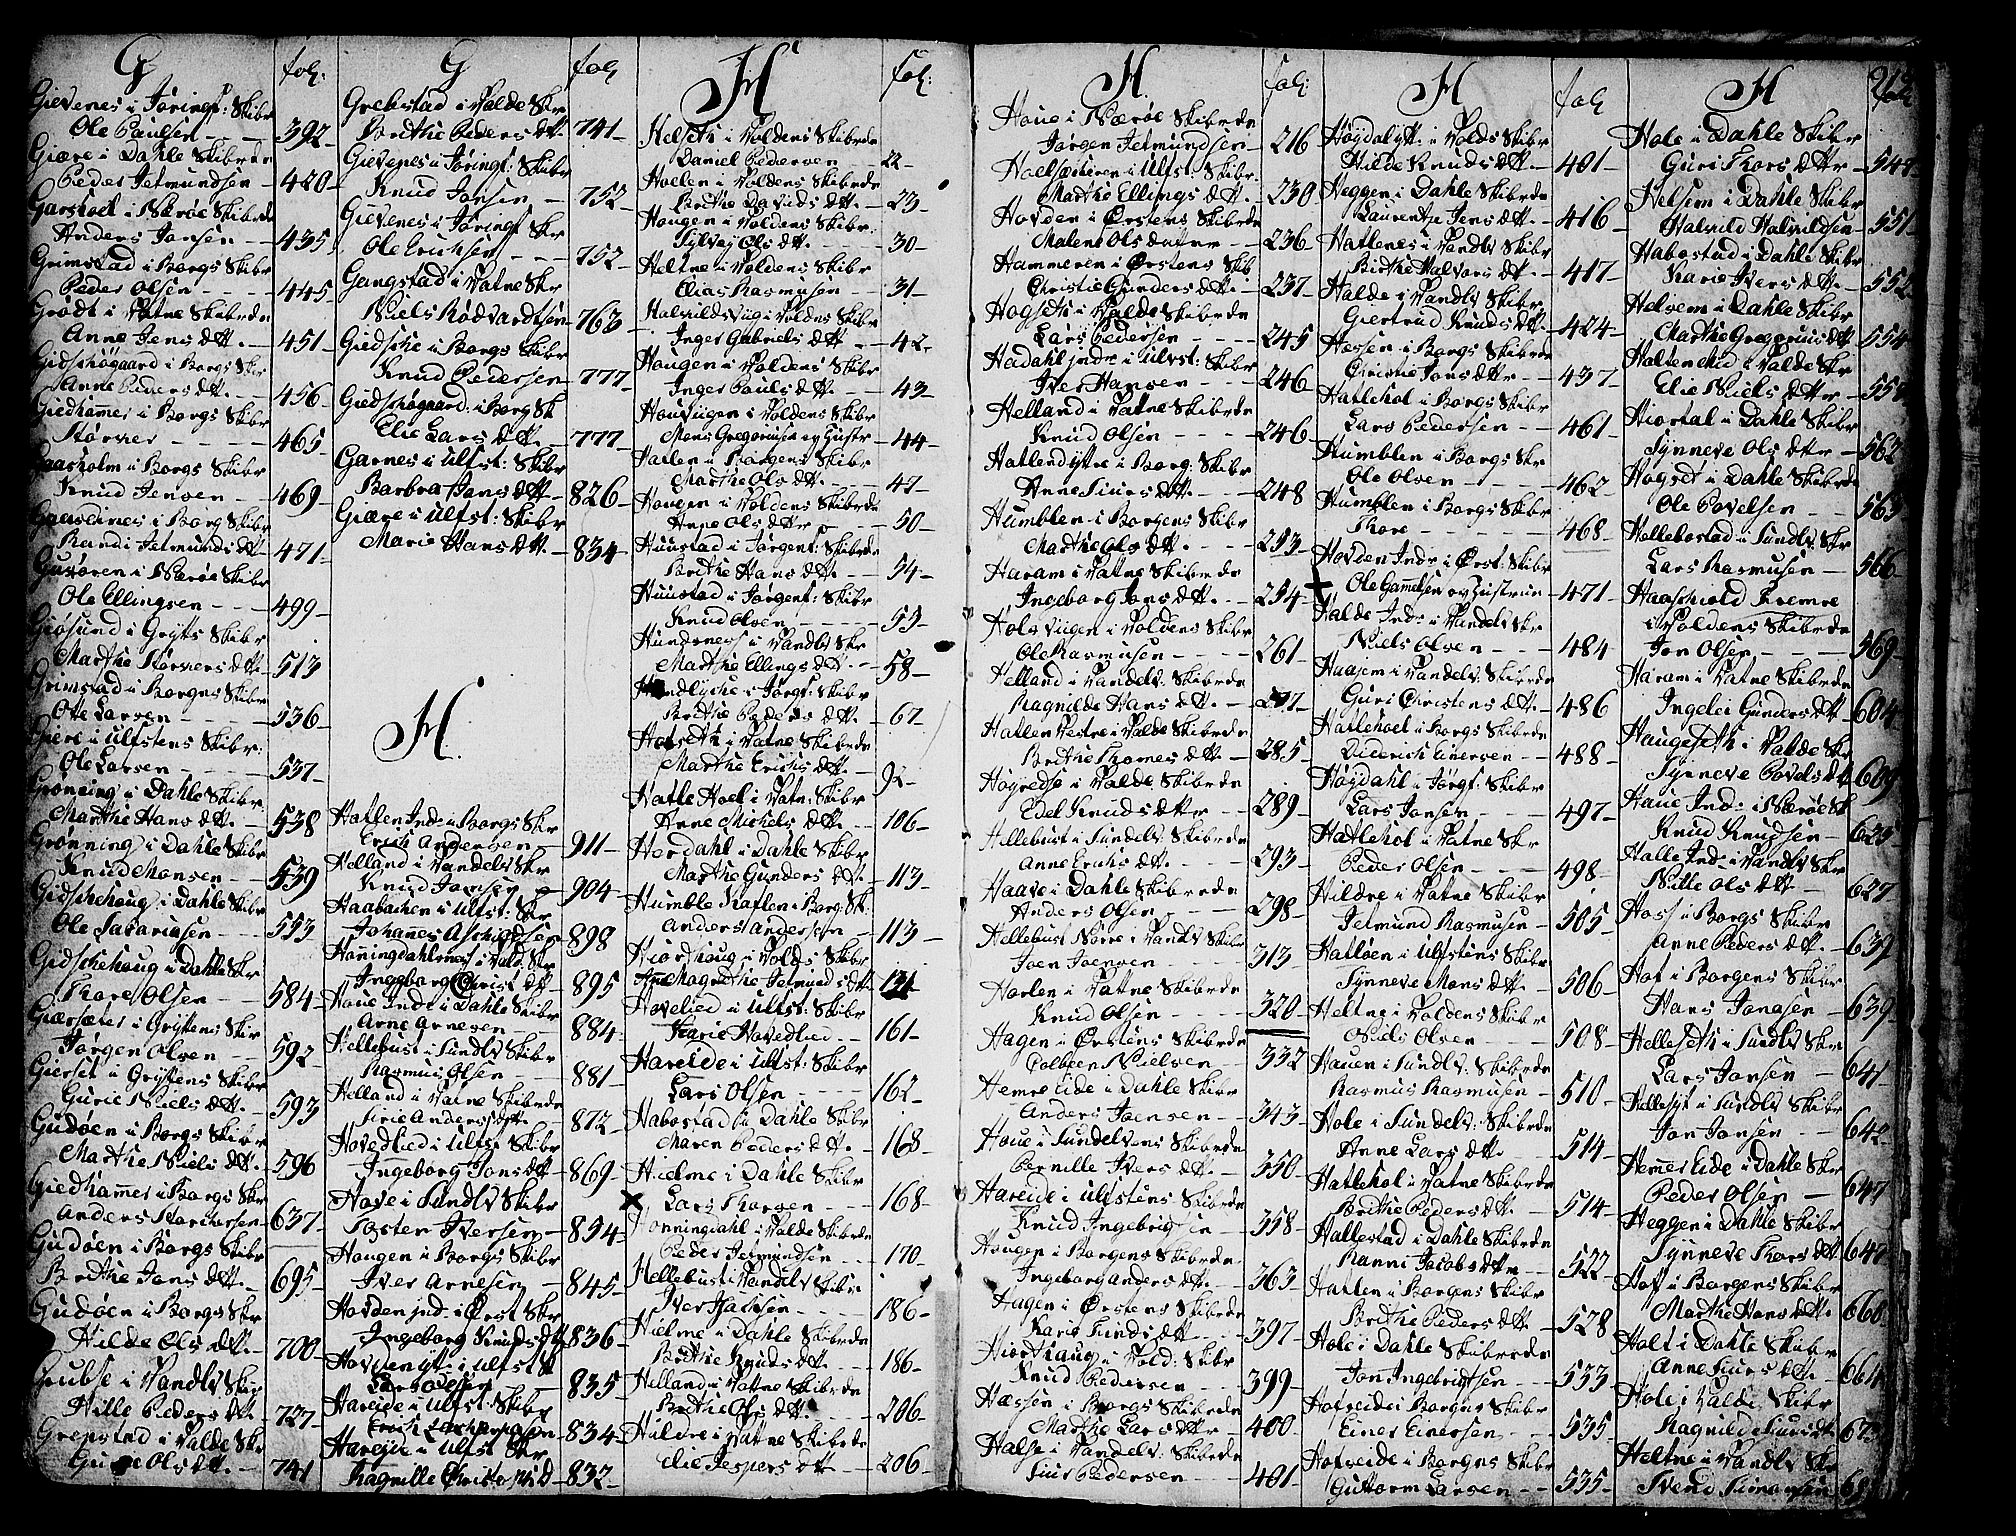 G fol:
Gievenes i Jøringf: Skibr
Ole Paulsen - - - 392
Giære i Dahle Skibrede
Peder Jetmundsen - 420
Garshoel i Nærøe Skibrede
Anders Jonsen - - 435
Grimstad i Borgs Skibr
Peder Olsen - - - 445
Grødt i Vatne Skibrede
Anne Jens dtt. - 451
Gidschøgaard i Borgs Skr
Anne Peders dtt. - 456
Giedhammer i Borgs Skibr
Størcher - - - - 465
Gaasholm i Borgs Skibr
Knud Jensen - - 469
i Borg Skibr
Randi Jetmunds dtt - 471
i Nærøe Skibr
Ole Ellingsen - - - 499
Giøsund i Grytt: Skibr
Marthe Størchers dtt. - 513
Grimstad i Borgens Skibr
Ole Larsen - - - 536
Giere i Ulfstens Skibr:
Ole Larsen - - - 537
Grøning i Dahle Skibr.
Marthe Hans dtt. - 538
Grønning i Dahle Skibr
Knud Monsen - - 539
Gidschehoug i Dahle Skibr
Ole Sakariasen - - 553
Gidschehoug i Dahle Skr
Thore Olsen - - 584
Giærsæter i Grytens Skr
Jørgen Olsen - - 592
Gierset i Grytens Skibr
Gurie Niels dtt. - 593
Gudøen i Borgs Skibr
Marthe Niels dtt. - 596
Giedhammer i Borgs Skr
Anders Storchersen - 637
Gudøen i Borgs Skibr
Brithe Jens dtt. - 695
Gudøen i Borgs Skr
Hilde Ols dtt. - 700
i Vandlv Skibr
Hille Peders dtt. - 727
Grepstad i Valde Skr
Guri Ols dtt. - 741
G fol
Grebstad i Valde Skr
Brithe Peders dtt - 741
Gievenes i Jøringf: Skibr
Knud Jonsen - 752
Gievenes i Jøringf Skr
Ole Erichsen - - - 752
Gangstad i Vatne Skr
Niels Rødvardtsen - 763
Giedsche i Borgs Skibr
Knud Pedersen - 777
Giedschøgaard: i Borg Sk
Elie Lars dtt. - 777
Garnes i Ulfst: Skibr
Barbra Jans dtt. - 826
Giære i Ulfst: Skibr
Marie Hans dtt. - 834
H.
Hatlen Ind: i Borgs Skr
Erich Andersen - - 911
Helland i Vandelv Skr
Knud Jonsen - 904
Haabachen i Ulfst: Skr
Johanes Aschildsen 898
Honingdahlsnes i Vald: Skr
Ingeborg Christ dtt 895
Houe inde i Dahle Skibr
Arne Arnesen - - 884
Hellebust i Sundlv Skibr
Rasmus Olsen - - 881
Helland i Vatne Skibrede
Sirie Anders dtt - 872
Hovedlied i Ulfst Skibr
Ingeborg Jons dtt - 869
Hove i Sundlv Skibr
Tosten Iversen - 854
Hougen i Borgs Skibr
Iver Arnesen - 845
Hovden ind: i Ørst Skr
Ingeborg Knuds dtt 836
Hovden yt: i Ulfst Sk
Lars Olsen - 835
Hareide i Ulfst: Skibr
Erich Zachariasen - 834
Hareide i Ulfst Skr
Ragnille Christophs D - 832
H fol:
Helseth i Voldens Skibrede
Daniel Pedersen 22
Hoelen i Voldens Skibrede
Brithe Davids dtt. - 23
Hougen i Voldens Skibr:
Sylvej Ols dtt. - - 30
Heltne i Voldens Skibr
Elias Rasmusen - - 31
Halvildsviig i Voldens Skibr
Inger Gabriels dtt - - 42
Hougen i Voldens Skibr
Inger Pauls dtt. - - 43
Houvigen i Voldens Skibr
Mons Gregoriusen og Hustr - 44
Hatlen i Borgens Skibr
Marthe Ols dtt. - - 47
Hougen i Voldens Skibrede
Anne Ols dttr - - - 50
Huustad i Jørgenf: Skibrede
Brithe Hans dtt. - - 54
Huustad i Jørgenf: Skibr
Knud Olsen - - - - 53
Hundsnes i Vandlv Skr
Marthe Ellings dtt. - - 58
i Jørgf: Skibr
Brithe Peders dtt. - 67
Hofseth i Vatne Skibrede
Marthe Erichs dtt. - 92
Hatle Hoel i Vatn: Skibr
Anne Michels dtt. - - 106
Hordahl i Dahle Skibr
Marthe Gunders dtt. - 113
Humble Hatlen i Borg: Sk:
Anders Andersson - - 113
Hiorthoug i Volds Skibr
Ane Magrethe Jetmunds dtt - 131
Hovelied i Ulfst: Skibr
Karie Hovedlied - - 161
Hareide i Ulfst: Skibr
Lars Olsen - - - - 162
Habostad i Dahle Skibr
Maren Peders dtt. - 168
Hielme i Dahle Skibr
Lars Thorsen - - - 168
Honningdahl i Valde Skibrede
Peder Jetmundsen - - - 170
Hellebust i Vandelv Skibr
Iver Isachsen - - - - 186
Hielme i Dahle Skibrede
Brithe Knuds dtt. - - - 186
Helland i Vatne Skibrede
Brithe Ols dtt. - - 206
Hildre i Vatne Skibrede
Elie Jespers dtt - - 206
H. fol:
Houe i Nærøe Skibrede
Jørgen Jetmundsen - 216
Haelsæteren i Ulfst: Skibr:
Marthe Ellings dtt. - 230
Hovden i Ørstens Skibrede
Malene Ols datter - - 236
Hammeren i Ørstens Skib
Christie Gunders dtt. - 237
Hogset i Valde Skibrede
Lars Pedersen - - - - 245
Hadahl indr i Ulvst: Skibr
Iver Hansen - - - 246
Helland i Vatne Skibrede
Knud Olsen - - - - 246
Hatlend yttre i Borg: Skibr
Anne Siurs dtt. - - - 248
Humblen i Borgens Skibr
Marthe Ols dtt. - - - 253
Haram i Vatne Skibrede
Ingeborg Jons dtt. - - 254
Hole Viigen i Voldens Skibr
Ole Rasmusen - - - - 261
Helland i Vandelv. Skibrede
Ragnilde Hans dtt. - - 277
Hatlen Vestre i Valde Skibrede
Brithe Thomes dtt. - - 285
Høgredse i Valde Skibrede
Edel Knuds dtter - - 289
Hellebust i Sundelv Skibrede
Anne Erichs dtt. - - - 293
Haave i Dahle Skibrede
Anders Olsen - - - 298
Hellebust Norre i Vandlv Skibr
Joen Joensen - - - 313
Horlen i Vatne Skibrede
Knud Olsen - - - - 320
Hagen i Ørstens Skibrede
Colbeen Nielsen - - - 332
Hemre Eide i Dahle Skibr
Anders Joensen - - 343
Houe i Sundelvens Skibrede
Pernille Ivers dtt. - - 350
Hareide i Ulfstens Skibrede
Knud Ingebrigtsen - - 358
Hougen i Borgens Skibrede
Ingeborg Anders dtt. - - 363
Hagen i Ørstens Skibrede
Karie Siurds dtt. - - 397
Hiorthaug i Vold: Skibr
Knud Pedersen - - - 399
Hessen i Borgs Skibrede
Marthe Lars dttr - - 400
Halse i Vandelv. Skibrede
Siur Pedersen - - - 401
H fol
Høgdal ytt: i Volds Skibr
Hilde Knuds dtt. - 401
Heggen i Dahle Skibrede
Laurentze Jens dtt. - 416
Hatlenes i Vandlv Skibr
Birthe Halvors dtt. - 417
Halde i Vandlv Skibr
Giertrud Knuds dtt. 424
Hessen i Borgs Skibrede
Christie Jons dttr - 437
Hatlehol i Borgs Skibr
Lars Pedersen - - 461
Humblen i Borgs Skr
Ole Olsen - - - - 462
Humblen i Borgs Skibr
Thore - - - - - 468
Hovden Indr i Ørst: Skibr
Ole Gamelsen og Hustrue - 471
Halde Ind: i Vandelv Skr
Niels Olsen - - - 484
Haasem i Vandelv Skibrede
Guri Christens dtt. - 486
Hatlehoel i Borgs Skibr
Diderich Einersen - - 488
Høgdahl i Jørgf: Skibr
Lars Jonsen - - - 497
Hatlehol i Vatne Skr
Peder Olsen - - - - 498
Hildre i Vatne Skibr
Jetmund Rasmusen - 505
Hatløen i Ulfstens Skibr
Synneve Mons dtt. - 506
Heltne i Voldens Skibr
Niels Olsen - - - 508
Hauen i Sundlv Skibr
Rasmus Rasmusen - 510
Hole i Sundelv: Skibr
Anne Lars dtt. - - 514
Hatlehol i Vatne Skibrede
Brithe Peders dtt. - 514
Hallestad i Dahle Skibrede
Ranni Jacobs dtr - 522
Hatlen i Borgens Skibr
Brithe Peders dtt. - 528
Hole i Dahle Skibrede
Jon Ingebrigtsen - 533
Hofseide i Borgens Skibr
Einer Einersen - - 535
Hofseide i Borgens Skibr
Guttorm Larsen - - 535
H fol
Hole i Dahle Skibr
Guri Thors dttr - 547
Helsem i Dahle Skibr
Halvild Halvildsen - 551
Habostad i Dahle Skibr
Karie Ivers dtt. - 552
Helsem i Dahle Skibr
Marthe Gregorius dtt 554
Haltenskid i Valde Skr
Elie Niels dtter - 558
Hiortal i Dahle Skibr
Synneve Ols dttr - 562
Hogset i Dahle Skibrede
Ole Povelsen - - 563
Hellebostad i Sundlv Skr
Lars Rasmusen - 566
Haaschiold Fremre
i Voldens Skibrede
Jon Olsen - - - 569
Haram i Vatne Skibrede
Ingelei Gunders dtt 604
Haugeseth i Valde Skr
Synneve Povels dtt 609
Haue Ind: i Nærøe Sk
Knud Knudsen - 625
Halle Ind: i Vandlv Skr
Nille Ols dtt - 627
Hoss i Borgs Skibr
Anne Peders dtt. - 639
Hof i Borgens Skibr
Hans Jonasen - 639
Helleseth i Sundlv Skr
Lars Jonsen - 641
Hellesyt i Sundlv Skibr
Jon Jonsen - - 642
Hemmer Eide i Dahle Skibr
Peder Olsen - 647
Heggen i Dahle Skibr
Synneve Thors dtt. 647
Hof i Borgens Skibr
Marthe Hans dttr. 660
Hole i Dahle Skibr
Anne Siurs dtt. - 664
Hole i Valde Skibr
Ragnilde Siurs dt 673
Heltne i Vandlv Skr
Svend Simonsen